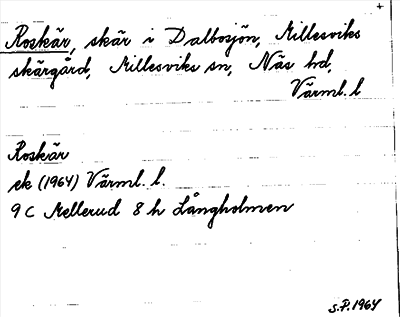 +
Roskär, skär i Dalbosjön, Millesviks
skärgård, Millesviks sn, Näs hd,
Värml. l
Roskär
ek (1964) Värml. l.
9 C Mellerud 8 h Långholmen
S.P. 1964